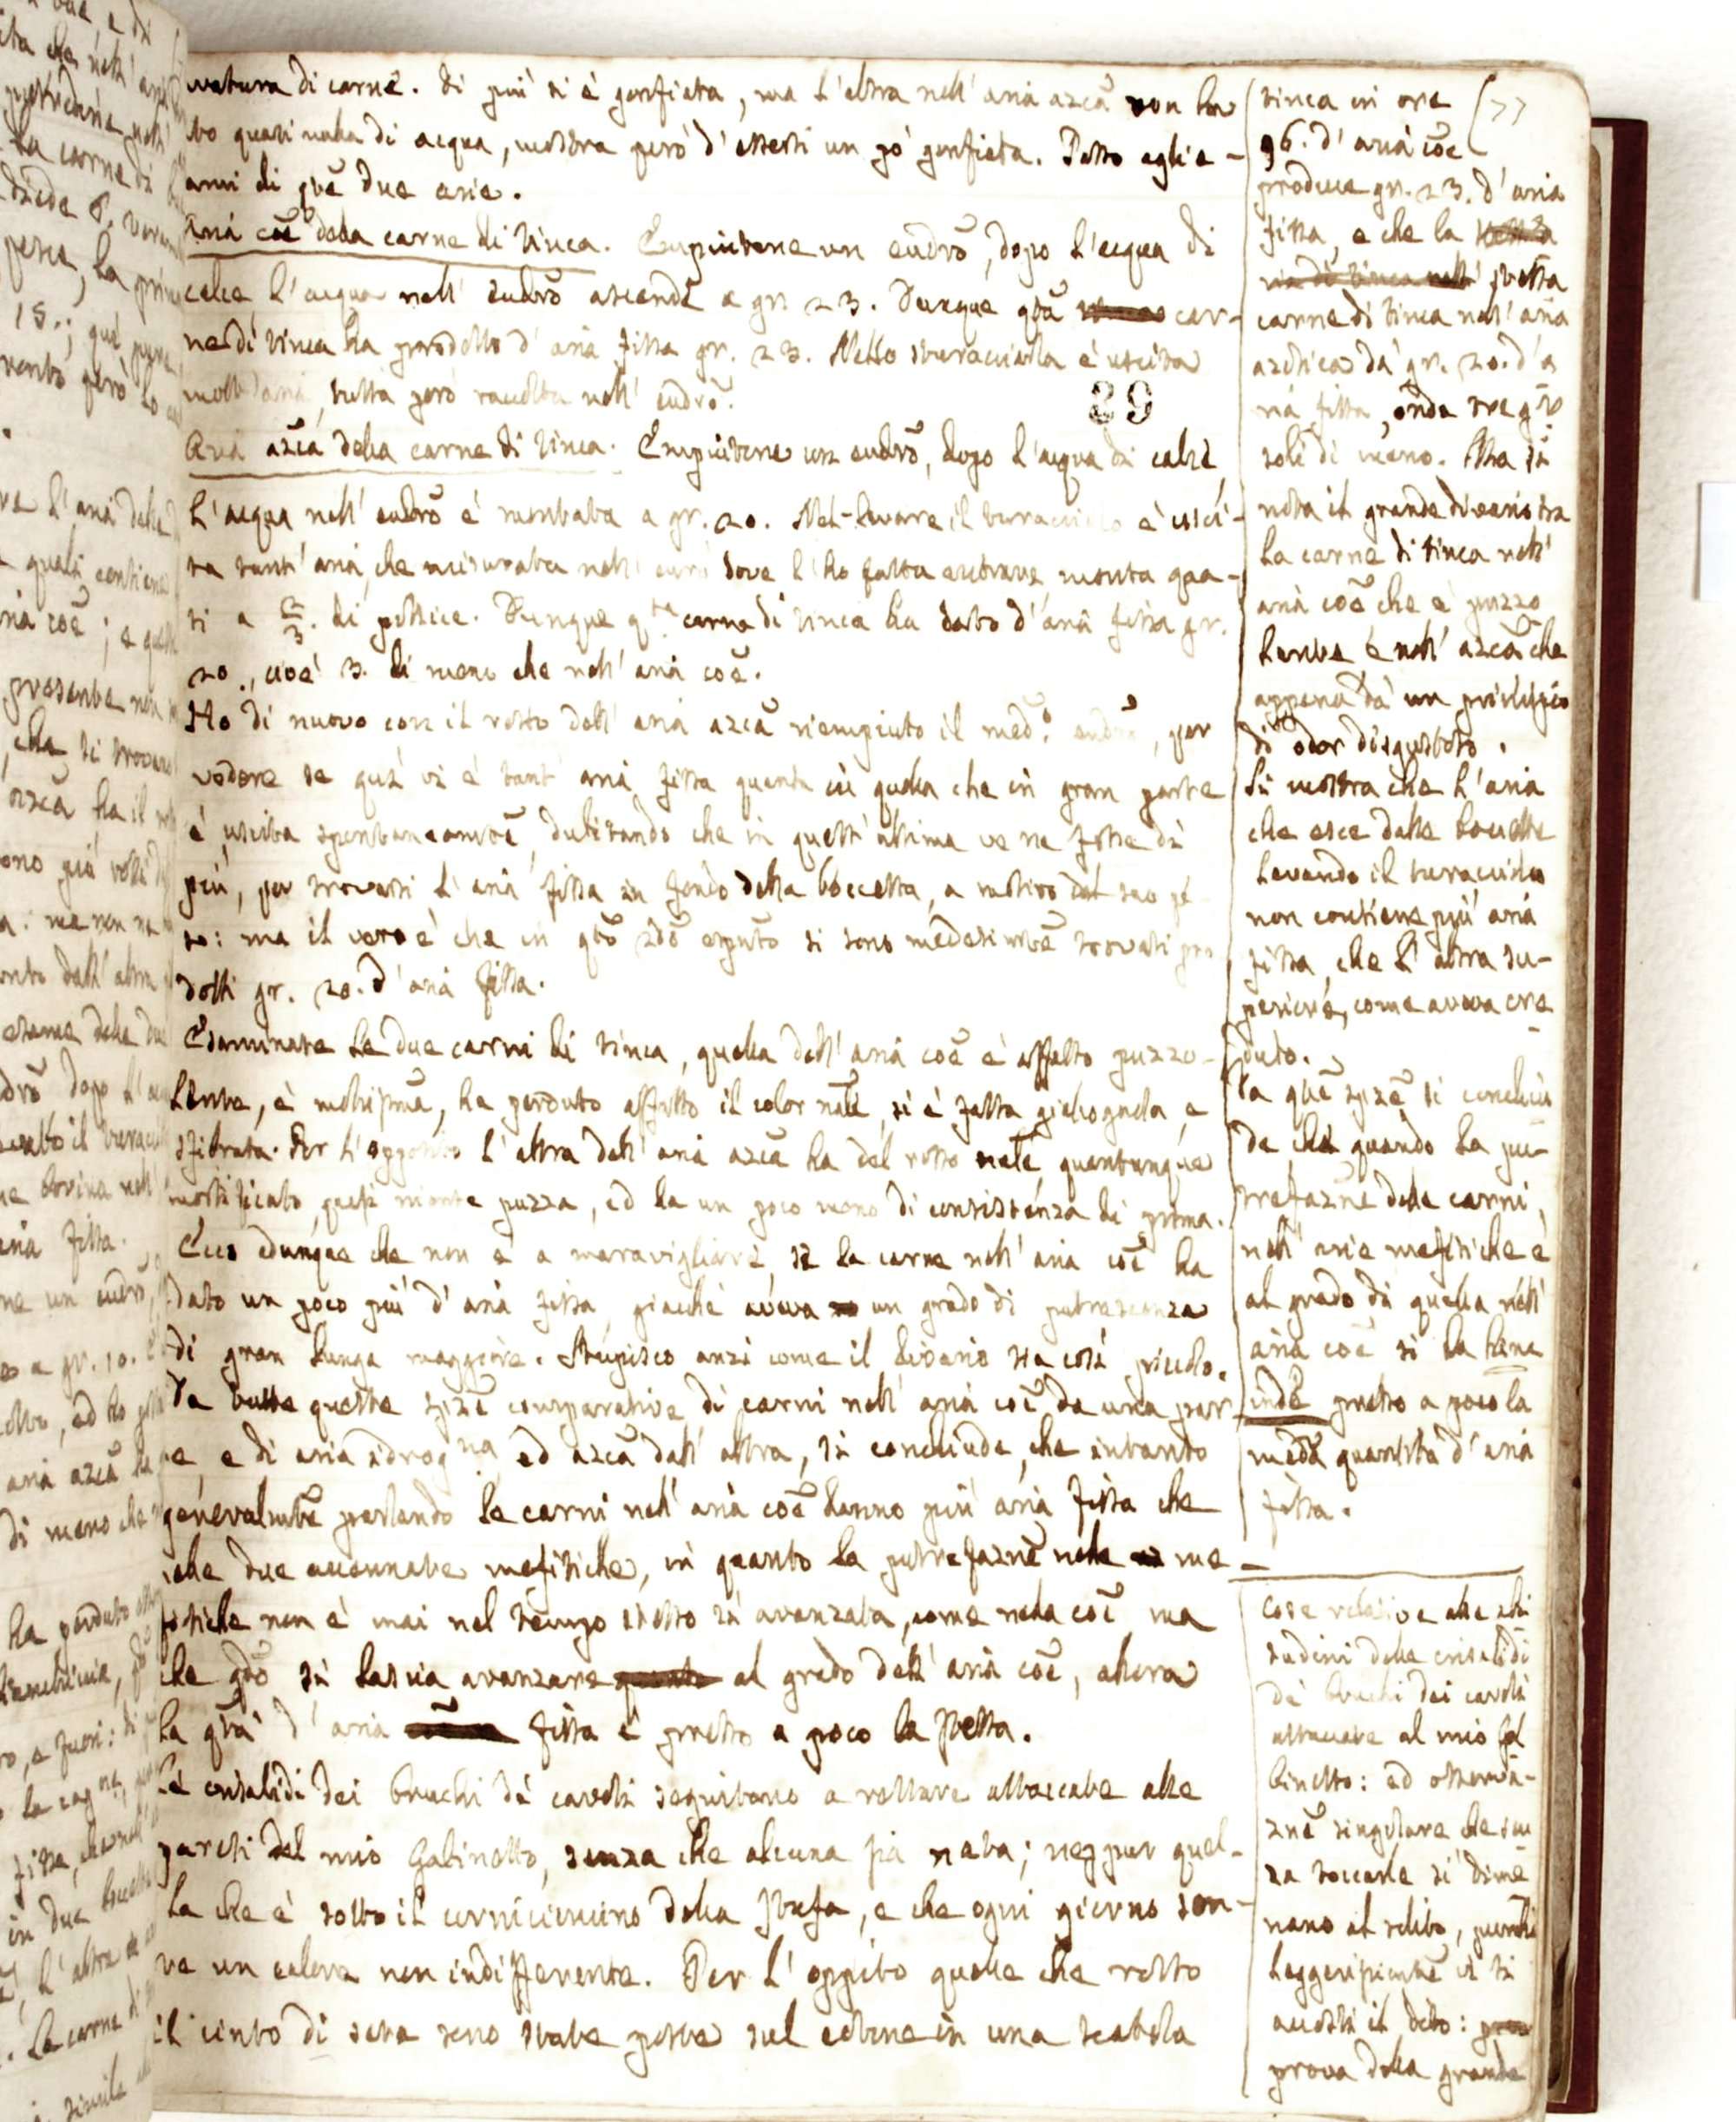 natura di carne. Di più si è gonfiata, ma l'altra nell'aria azca non ha
to quasi nulla di acqua, mostra però d'essersi un pò gonfiata. Passo agl'e-
ami di qũe due arie.
Aria cõe della carne di tinca. Empiutone un eudrõ, dopo l'acqua di
calce l'acqua nell'eudrõ ascende a gr. 23. Dunque qũa car-
ne di tinca ha prodotto d'aria fissa gr. 23. Nello sturacciarla è uscita
molt'aria, tutta però raccolta nell'eudrõ.
39
Aria azca della carne di tinca. Empiutone un eudrõ, dopo l'acqua di calce
l'acqua nell'eudrõ è montata a gr. 20. Nel levare il turacciolo è usci-
ta tant'aria, che misurata nell' dove l'ho fatta entrare, monta qua-
si a di pollice. Dunque qta carne di tinca ha dato d'aria fissa gr.
20., cioè 3. di meno che nell'aria cõe.
Ho di nuovo con il resto dell'aria azca riempiuto il medo. eudrõ, per
vedere se qui vi è tant'aria fissa quanta in quella che in gran parte
è uscita spontaneamtẽ, dubitando che in quest'ultima ve ne fosse di
più, per trovarsi l'aria fissa in fondo della boccetta, a motivo del suo pe
so: ma il vero è che in qũo 2do esputo si sono medesimtẽ trovati pro
dotti gr. 20. d'aria fissa.
Esaminate le due carni di tinca, quella dell'aria cõe è affatto puzzo-
lente, è mollisma, ha perduto affatto il color nale, si è fatta giallognola, e
sfibrata. Per l'opposto l'altra dell'aria azca ha del rosso nale, quantunque
mortificato, quasi niente puzza, ed ha un poco meno di consistenza di prima.
Ecco adunque che non è a maravigliare, se la carne nell'aria cõe ha
dato un poco più d'aria fissa, giacchè aveva un grado di putrescenza
di gran lunga maggiore. Stupisco anzi come il divario sia così piccolo.
Da tutte queste spze comparative di carni nell'aria cõe da una par-
te, e di aria idrogna ed azca dall'altra, si conclude, che intanto
generalmte parlando le carni nell'aria cõe danno più aria fissa che
nelle due accennate mefitiche, in quanto la putrefazne nelle me-
fitiche non è mai nel tempo stesso sì avanzata, come nella cõe, ma
che qdo si lascia avanzare al grado dell'aria cõe, allora
la qtà d'aria fissa è presso a poco la stessa.
Le crisalidi dei bruchi de' cavoli seguitano a restare attaccate alle
pareti del mio Gabinetto, senza che alcuna sia nata; neppur quel-
la che è sotto il cornicioncino della stufa, e che ogni giorno sen-
te un calore non indifferente. Per l'oppito quelle che rotto
il cinto di seta sono state poste sul cotone in una scatola
tinca in ore
96. d'aria cõe
produce gr. 23. d'aria
fissa, e che la
stessa
carne di tinca nell'aria
azotica dà gr. 20. d'a
ria fissa, onde tre gr.
soli di meno. Ma si
nota il grande divario tra
la carne di tinca nell'
aria cõe che è puzzo
lente e nell'azca che
appena dà un principio
di odor disgustoso.
Si mostra che l'aria
che esce dalle boccette
levando il turacciolo
non contiene più aria
fissa, che l'altra su-
periore, come aveva cre
duto.
Da qũe spze si conclu
de che quando la pu-
trefazne delle carni,
nell'arie mefitiche è
al grado di quella nell'
aria cõe si ha bene
inde presso a poco la
meda quantità d'aria
fissa.
Cose relative alle abi
tudini delle crisalidi
de' bruchi dei cavoli
attaccate al mio Ga
binetto: ed osserva-
zne singolare che sen
za toccarle si dime
nano al solito, purchè
leggerissimte vi si
accosti il dito:
prova della grande